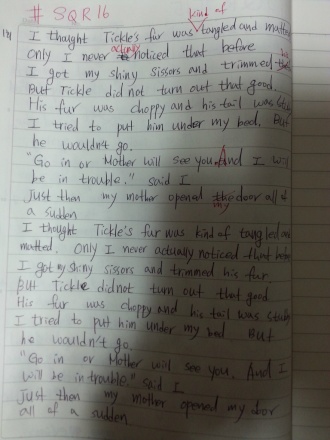 # SQR16
kind of
I thought Tickle's fur was tangled and matte
actually
Only I never noticed that before
I got my shiny sissors and trimmed
But Tickle did not turn out that good.
His fur was choppy and his tail was
I tried to put him under my bed. But
he wouldn't go.
"Go in or Mother will see you. And I will
be in trouble." said I
Just then my mother opened the door all of
my
a sudden
I thought Tickle's fur was kind of tangled and
matted. Only I never actually noticed that before
I got my shiny sissors and trimmed his fur
But Tickle did not turn out that good
His fur was choppy and his tail was
I tried to put him under my bed But
he wouldn't go.
"Go in or Mother will see you. And I
will be in trouble." said I
Just then my mother opened my door
all of a sudden